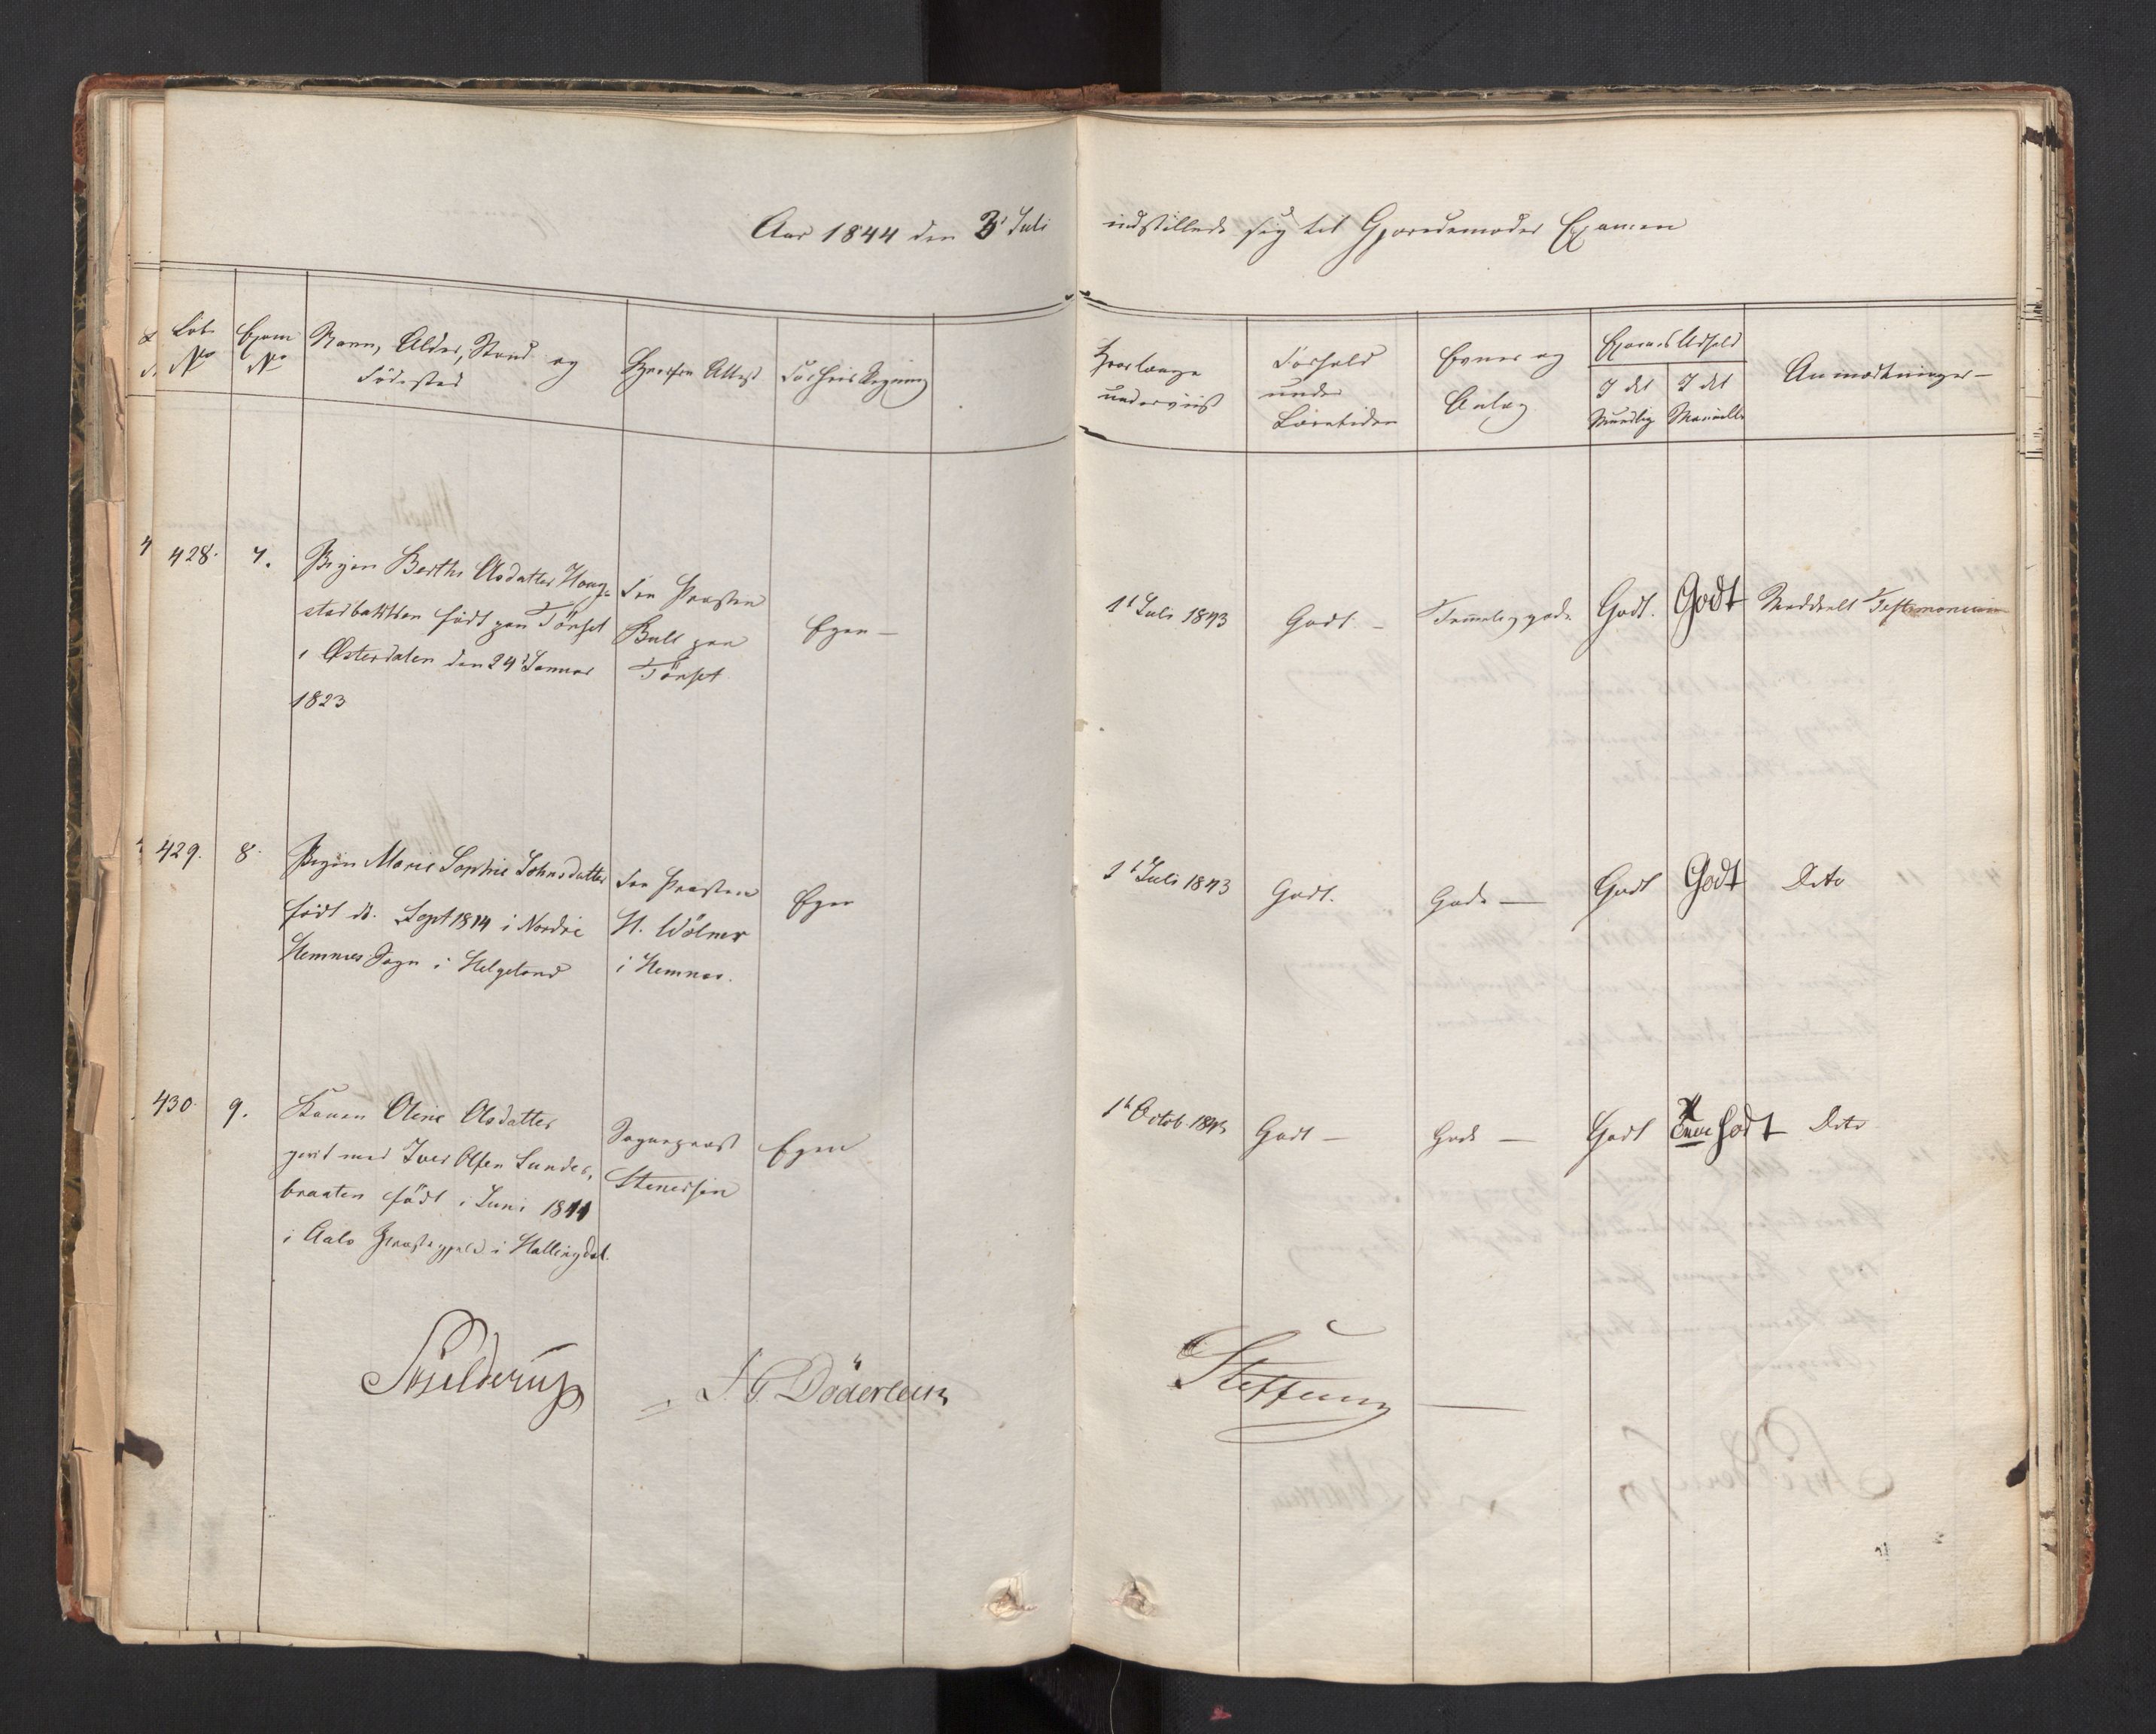 Aar 1844 den 3' Juli indstillede sig til Gjordemoder Examen
Løb No
Exam No
Navn, Alder, Stand og
Födested
Hvorfra Attest
For hvis Regning
Hvorlænge
underviist
Forhold
under
Læretiden
Evner og
Anlæg
Examens Udfald
I det
Mundtlig
I det
Manuelle
Anmærkninger
428.
7.
Pigen Berthe Olsdatter Houg-
stadbakken født paa Tönset
i Østerdalen den 24' Januar
1823
Fra Præsten
Bull paa
Tönset
Egen
1' Juli 1843
Godt
Temmelig gode
Godt.
Godt
Meddeelt Testimonium
429.
8.
Pigen Marie Sophie Johnsdatter
født d. Sept 1814 i Nordre
Hemnes Sogn i Helgeland
Fra Præsten
H. Wölner
i Hemnes.
Egen
1' Juli 1843
Godt.
Gode
Godt
Godt
Dito
430.
9.
Konen Olene Olsdatter
givt med Iver Olsen Sunde-
braaten født i Juni 1811
i Aals Præstegjeld i Hallingdal.
Sognepræst
Stenersen
Egen
1' Octob. 1843
Godt
Gode
Godt
Godt
Dito
Skjelderup
J. G. Döderlein
Steffens